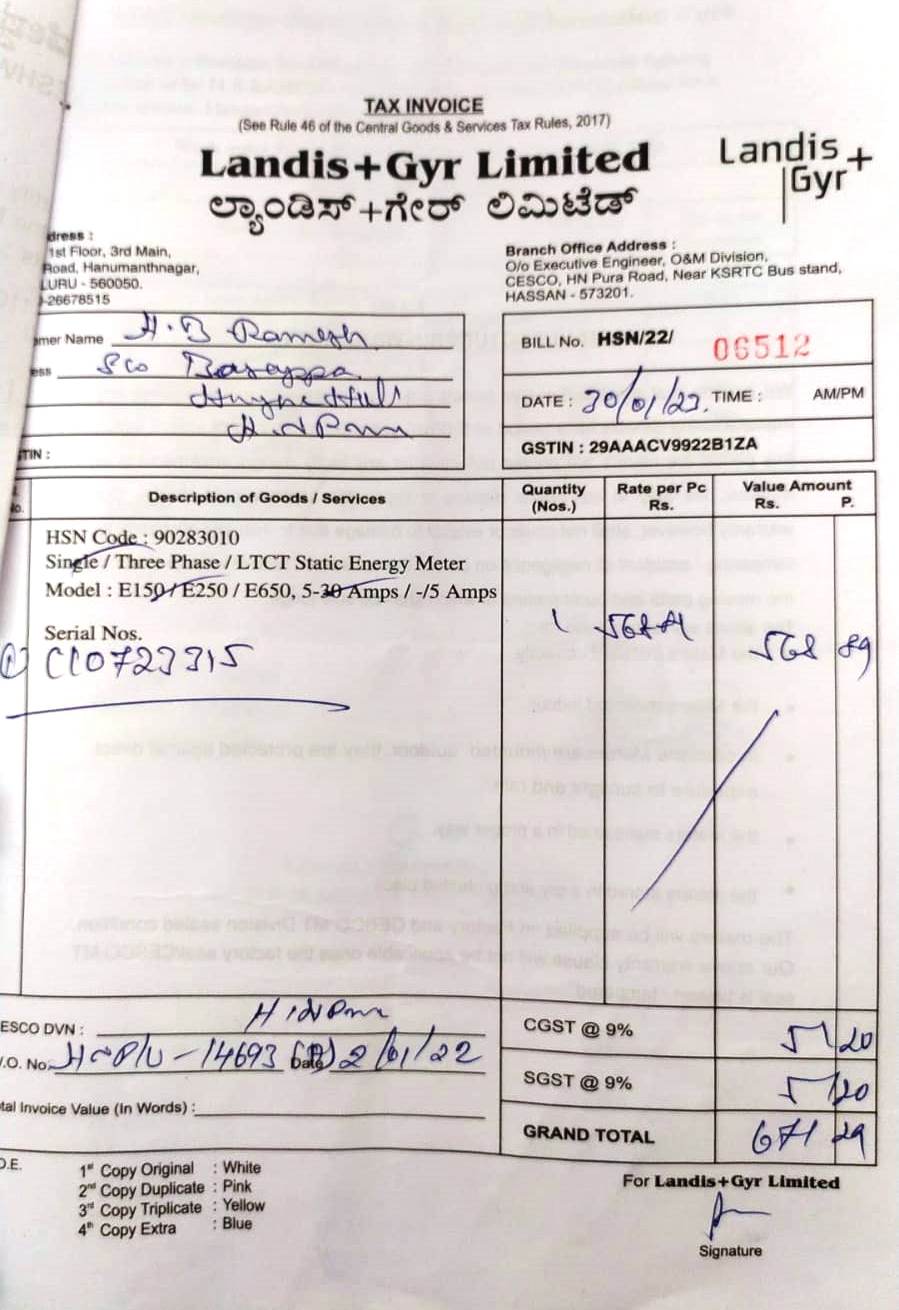 TAX INVOICE
(See Rule 46 of the Central Goods & Services Tax Rules, 2017)
Landis+Gyr Limited
ಲ್ಯಾಂಡಿಸ್+ಗೇರ್ ಲಿಮಿಟೆಡ್
Landis
Gyr+
dress :
1st Floor, 3rd Main,
Road, Hanumanthnagar,
LURU - 560050.
-26678515
Branch Office Address :
O/o Executive Engineer, O&M Division,
CESCO, HN Pura Road, Near KSRTC Bus stand,
HASSAN - 573201.
omer Name H.B Ramesh
ess S/o Basappa
H.N Pura
TIN :
BILL No. HSN/22/ 06512
DATE : 30/01/23. TIME : AM/PM
GSTIN : 29AAACV9922B1ZA
No. Description of Goods / Services Quantity (Nos.) Rate per Pc Rs. Value Amount Rs. P.
HSN Code : 90283010
Single / Three Phase / LTCT Static Energy Meter
Model : E150 / E250 / E650, 5-30 Amps / -/5 Amps
Serial Nos. 1 568 89
① C10723315 568 89
ESCO DVN : H.N Pura
.O. No. HNP/U-14693 Date 2/01/22
tal Invoice Value (In Words) :
CGST @ 9% 51 20
SGST @ 9% 51 20
GRAND TOTAL 671 29
O.E.
1st Copy Original : White
2nd Copy Duplicate : Pink
3rd Copy Triplicate : Yellow
4th Copy Extra : Blue
For Landis+Gyr Limited
Signature